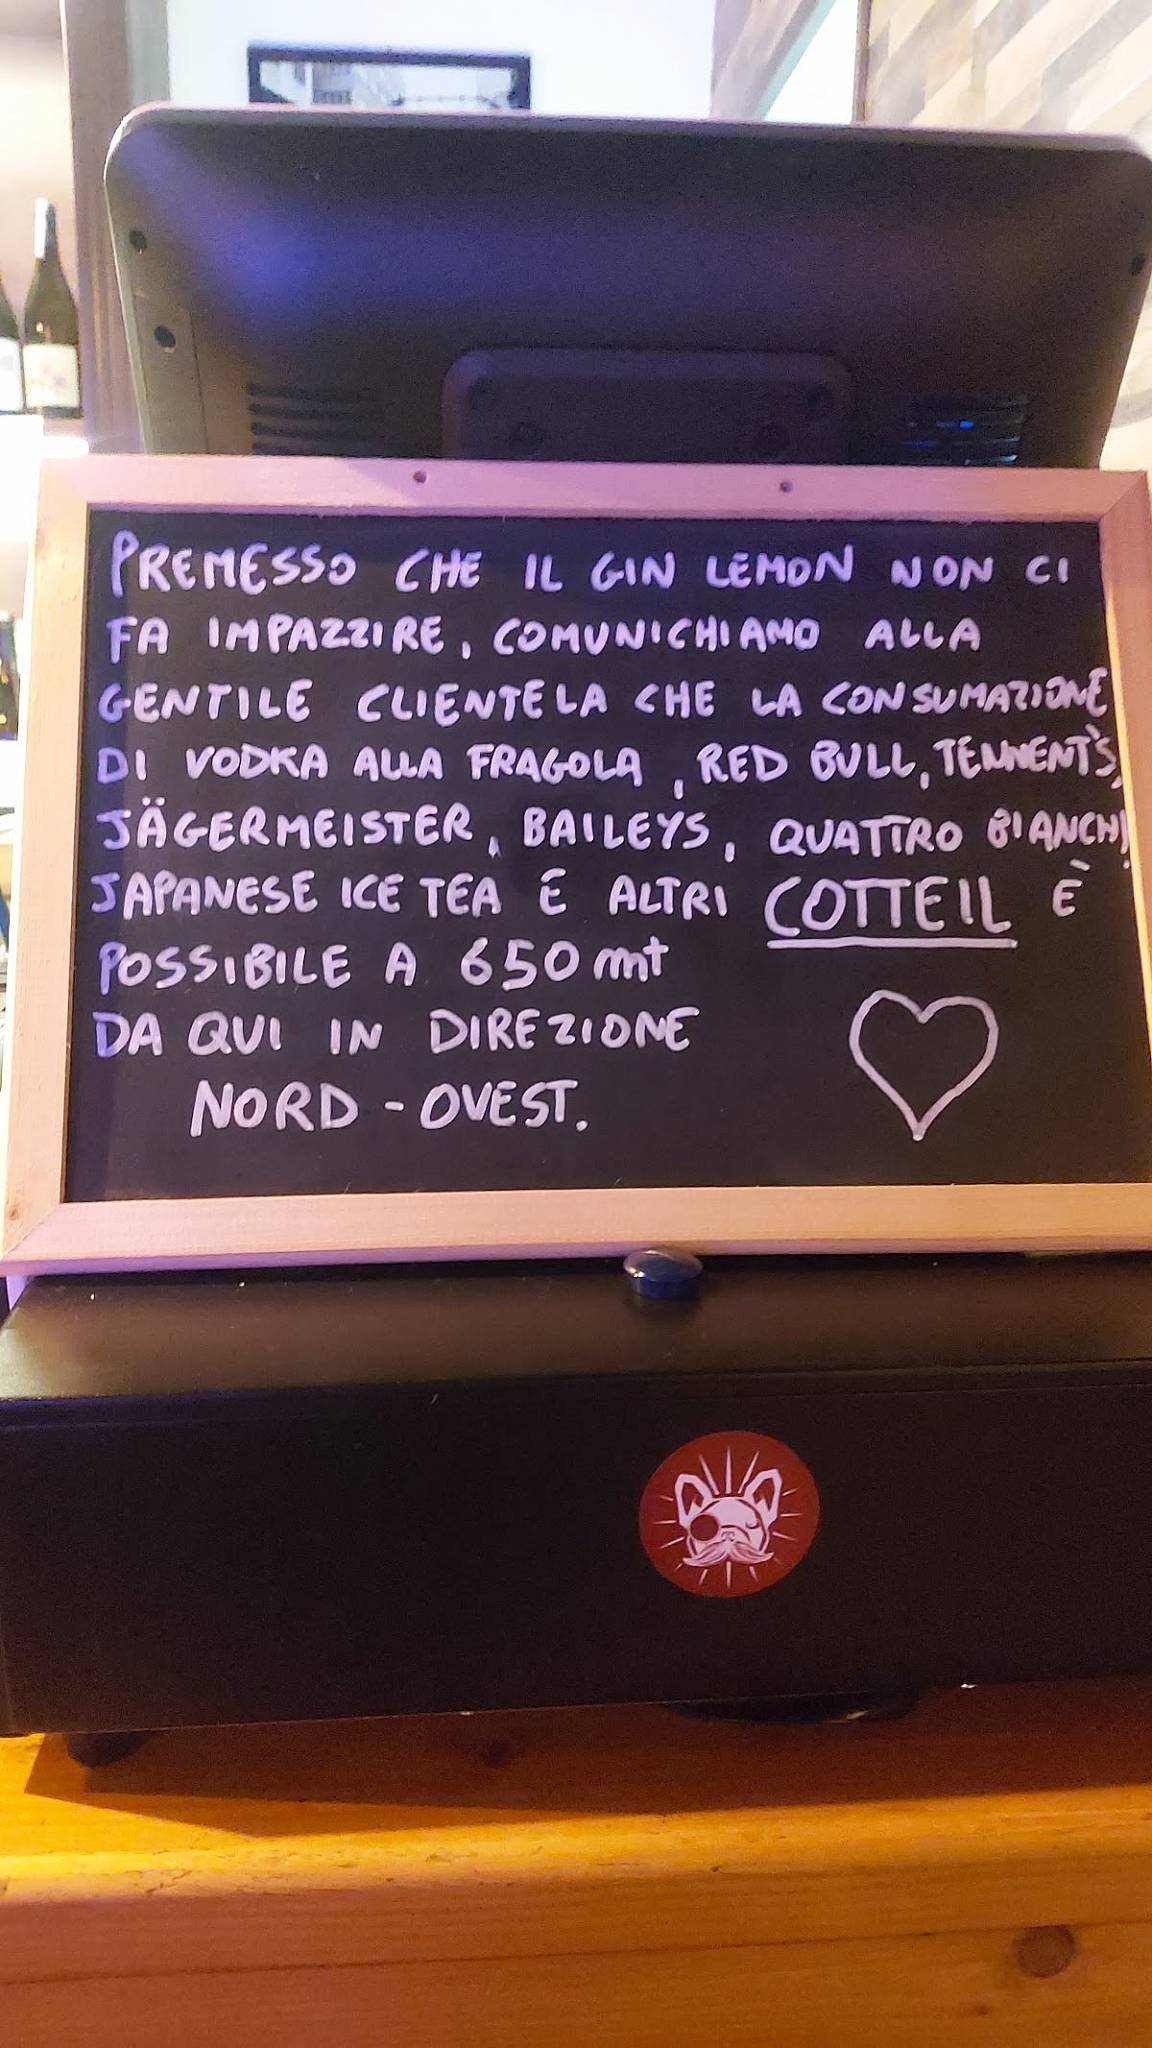 PREMESSO CHE IL GIN LEMON NON CI
FA IMPAZZIRE, COMUNICHIAMO ALLA
GENTILE CLIENTELA CHE LA CONSUMAZIONE
DI VODKA ALLA FRAGOLA, RED BULL, TENNENT'S,
JÄGERMEISTER, BAILEYS, QUATTRO BIANCHI,
JAPANESE ICE TEA E ALTRI COTTEIL È
POSSIBILE A 650 mt
DA QUI IN DIREZIONE
NORD-OVEST.